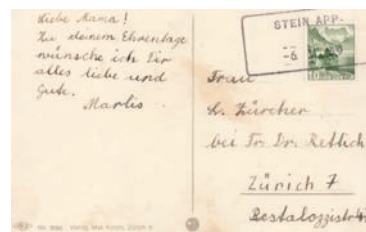 Liebe Mama!
Zu deinem Ehrentage
wünsche ich Dir
alles liebe und
Gute.
Marlis
STEIN APP.
-6.
10
Frau
Zürcher
bei Fr. Dr. Rettich
Zürich 7
Pestalozzistr.